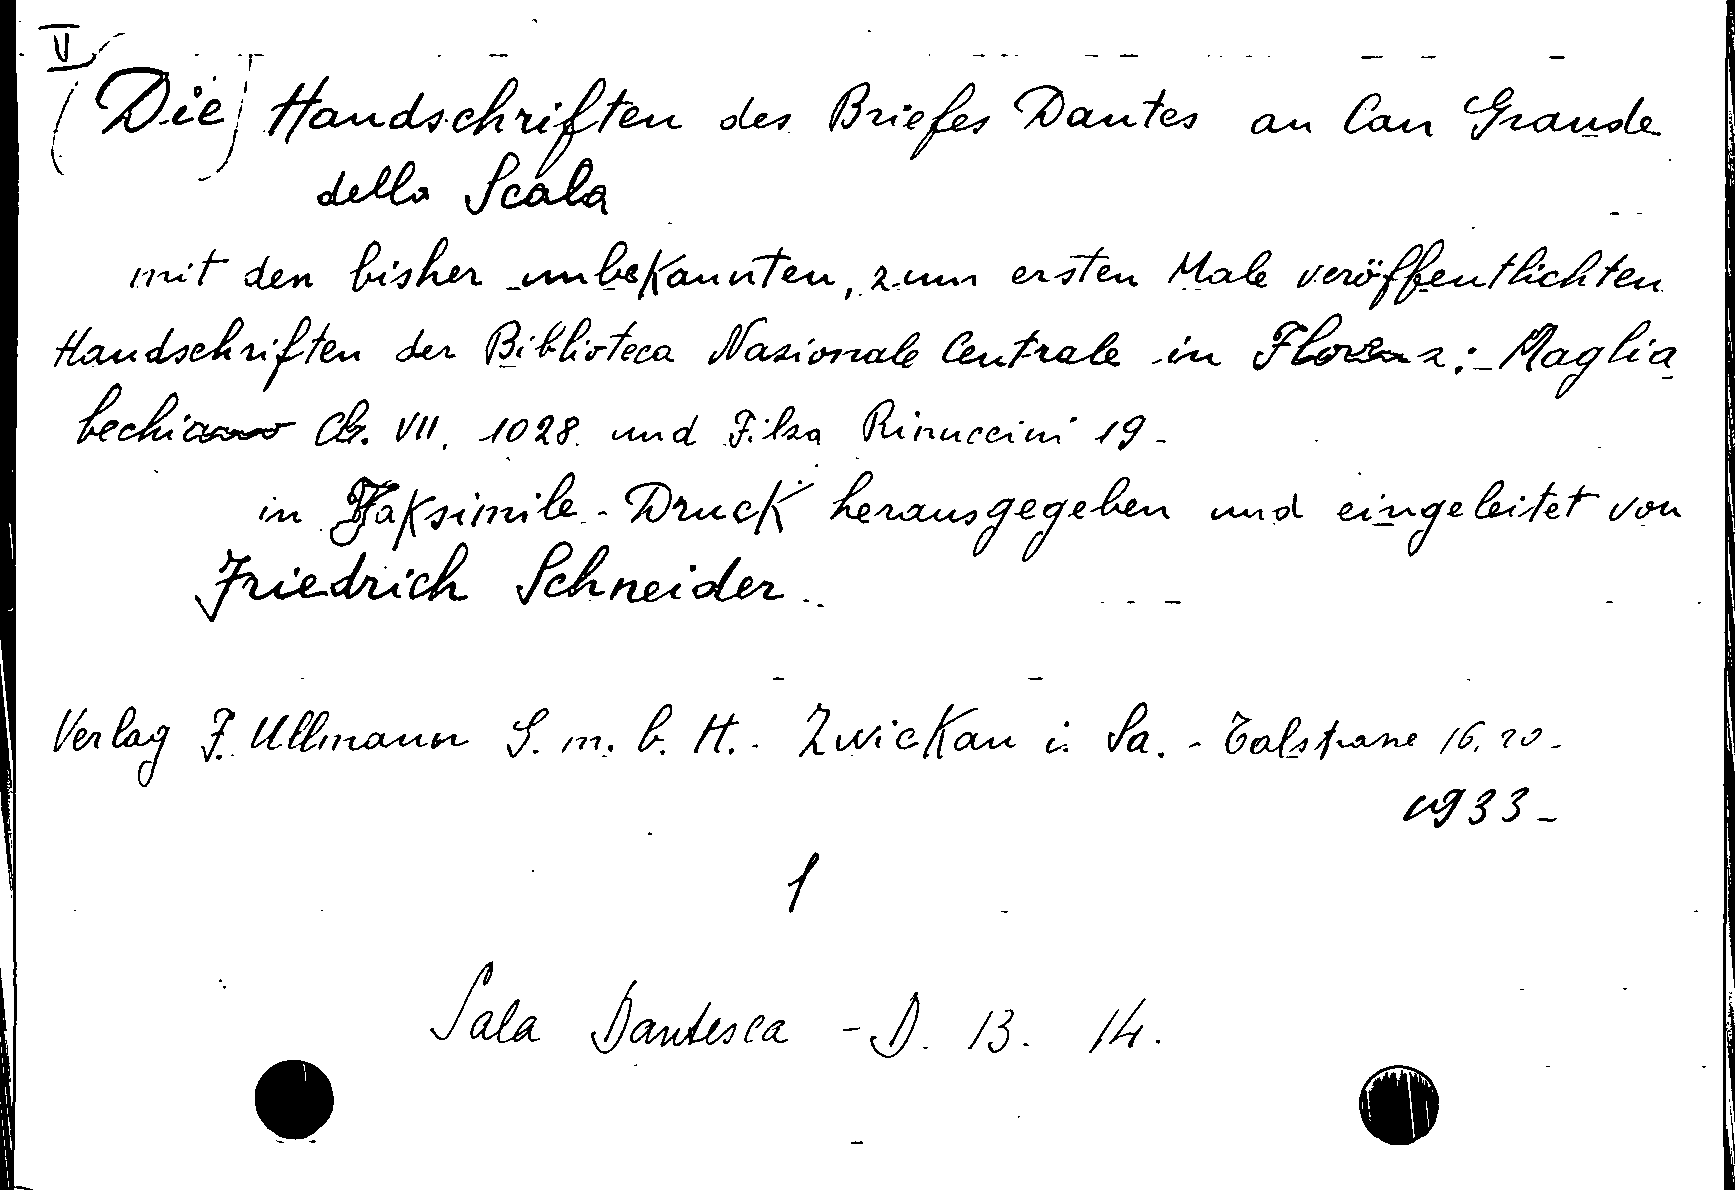 V
(Die) Handschriften des Briefes Dantes an Can Grande
della Scala
mit den bisher unbekannten, zum ersten Male veröffentlichten
Handschriften der Biblioteca Nazionale Centrale in Florenz: Maglia
bechiano Cl. VII. 1028 und Filza Rinuccini 19 -
in Faksimile - Druck herausgegeben und eingeleitet von
Friedrich Schneider.
Verlag F. Ullmann G. m. b. H. - Zwickau i. Sa. - Talstrasse 16.20 -
1933 -
1
Sala Dantesca - D. 13. 14.